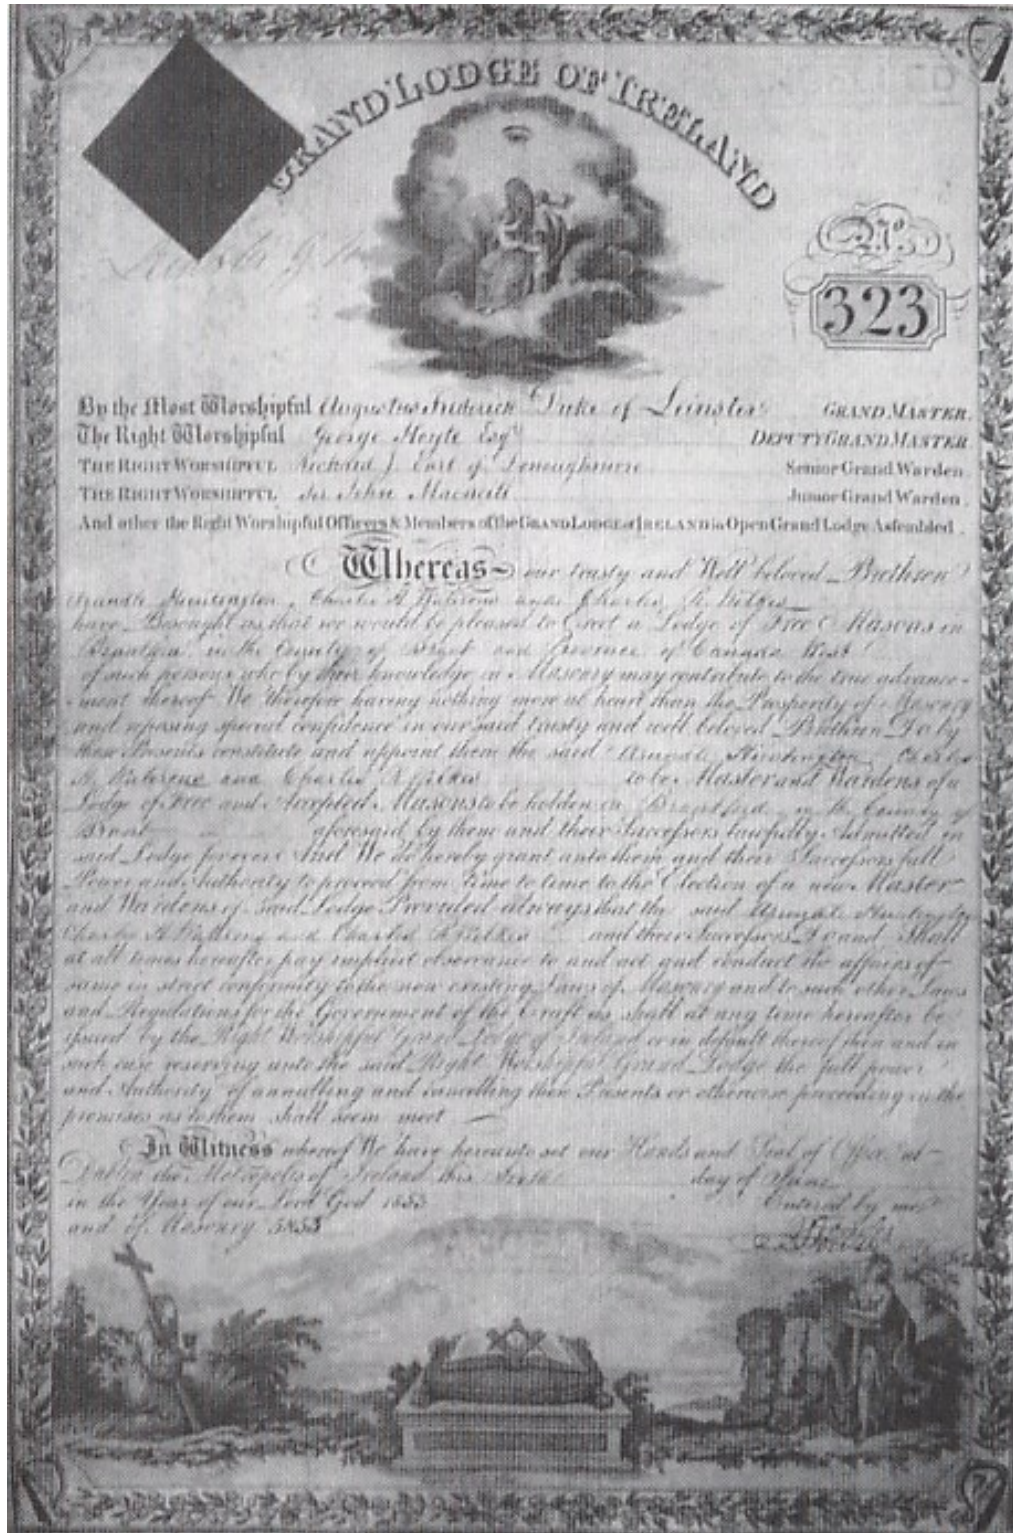 GRAND LODGE OF IRELAND
No.
323
By the Most Worshipful Augustus Frederick Duke of Leinster GRAND MASTER.
The Right Worshipful George Hoyte Esqr DEPUTY GRAND MASTER
THE RIGHT WORSHIPFUL Richard J. Earl of Donoughmore Senior Grand Warden.
THE RIGHT WORSHIPFUL Sir John Macneill Junior Grand Warden.
And other the Right Worshipful Officers & Members of the GRAND LODGE of IRELAND in Open Grand Lodge Assembled.
Whereas our trusty and Well beloved Brethren
Huntington, Charles A. and Charles R. Wilkes
have Besought us that we would be pleased to Erect a Lodge of Free Masons in
Brantford in the County of Brant and Province of Canada West
of such persons who by their knowledge in Masonry may contribute to the true advance-
-ment thereof We therefore having nothing more at heart than the Prosperity of Masonry
and reposing special confidence in our said trusty and well beloved Brethren Do by
these Presents constitute and appoint them the said Huntington Charles
and Charles R Wilkes to be Master and Wardens of a
Lodge of Free and Accepted Masons to be holden in Brantford in the County of
Brant aforesaid by them and their Successors lawfully Admitted in
said Lodge forever And We do hereby grant unto them and their Successors full
Power and Authority to proceed from time to time to the Election of a new Master
and Wardens of said Lodge Provided always that the said Huntington
Charles A and Charles R Wilkes and their Successors Do and Shall
at all times hereafter pay implicit observance to and act and conduct the affairs of
same in strict conformity to the now existing Laws of Masonry and to such other Laws
and Regulations for the Government of the Craft as shall at any time hereafter be
issued by the Right Worshipful Grand Lodge of Ireland or in default thereof then and in
such case reserving unto the said Right Worshipful Grand Lodge the full power
and Authority of annulling and cancelling these Presents or otherwise proceeding in the
premises as to them shall seem meet
In Witness whereof We have hereunto set our Hands and Seal of Office at
Dublin the Metropolis of Ireland this day of June
in the Year of our Lord God 1853 Entered by me
and of Masonry 5853